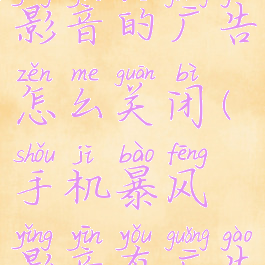 影音的广告
zěn me guān bì
怎么关闭(
shǒu jī bào fēng
手机暴风
yǐng yīn yǒu guǎng gào
影音有广告